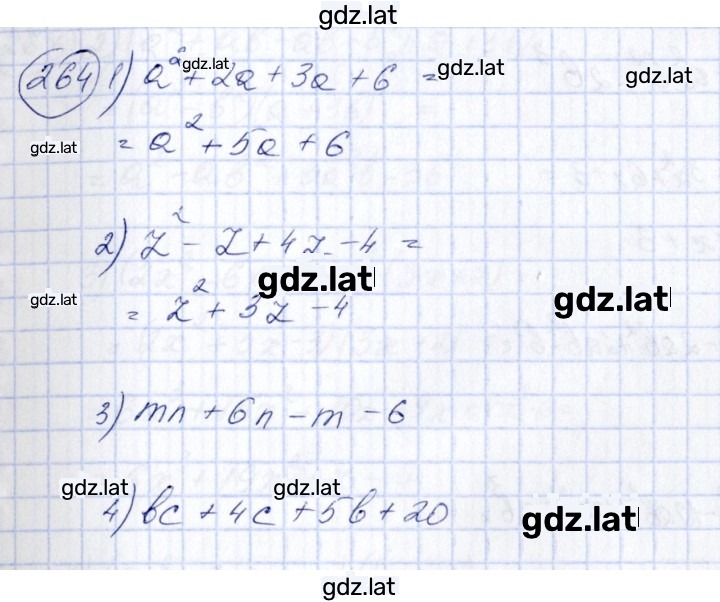 gdz.lat
264 1) a² + 2a + 3a + 6 =
gdz.lat gdz.lat gdz.lat
= a² + 5a + 6
gdz.lat
2) z² - z + 4z - 4 =
gdz.lat gdz.lat
= z² + 3z - 4
gdz.lat
3) mn + 6n - m - 6
gdz.lat gdz.lat
4) bc + 4c + 5b + 20
gdz.lat
gdz.lat